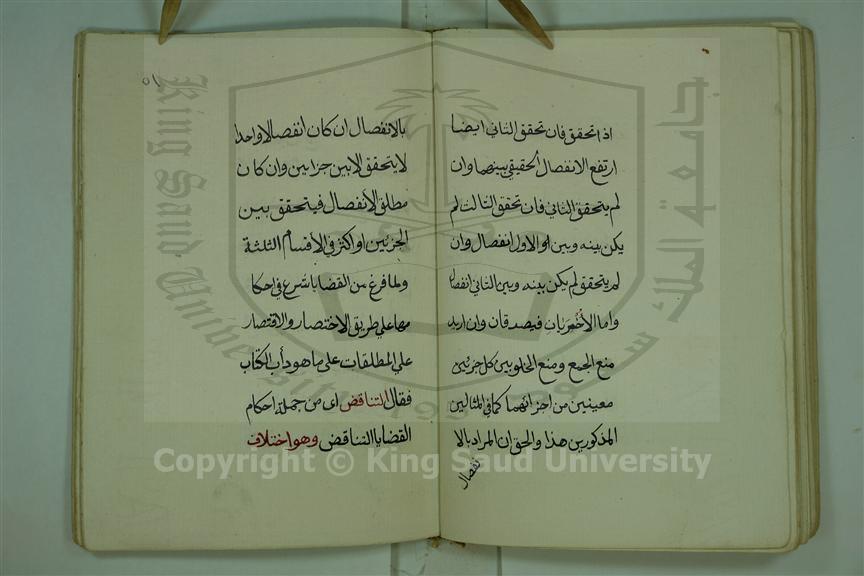 اذا تحقق فان تحقق الثاني ايضا
ارتفع الانفصال الحقيقي بينهما وان
لم يتحقق الثاني فان تحقق الثالث لم
يكن بينه وبين او الاول انفصال وان
لم يتحقق لم يكن بينه وبين الثاني انفصال
واما الأخريان فيصدقان وان اريد
منع الجمع ومنع الخلو بين كل جزئين
معينين من اجزائهما كما في المثالين
المذكورين هذا والحق ان المراد بالا
نفصال
٥١
بالانفصال ان كان انفصالا واحدا
لا يتحقق الا بين جزأين وان كان
مطلق الأنفصال فيتحقق بين
الجزئين او اكثر في الأقسام الثلثة
ولما فرغ من القضايا شرع في احكا
مها علي طريق الاختصار والاقتصار
علي المطلقات على ما هو دأب الكتاب
فقال التناقض اى من جملة احكام
القضايا التناقض وهو اختلاف
جامعة الملك سعود
King Saud University
Copyright © King Saud University